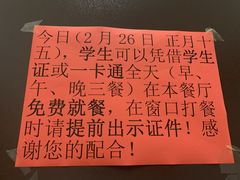 今日(2月26日 正月十
五),学生可以凭借学生
证或一卡通全天(早、
午、晚三餐)在本餐厅
免费就餐,在窗口打餐
时请提前出示证件!感
谢您的配合!